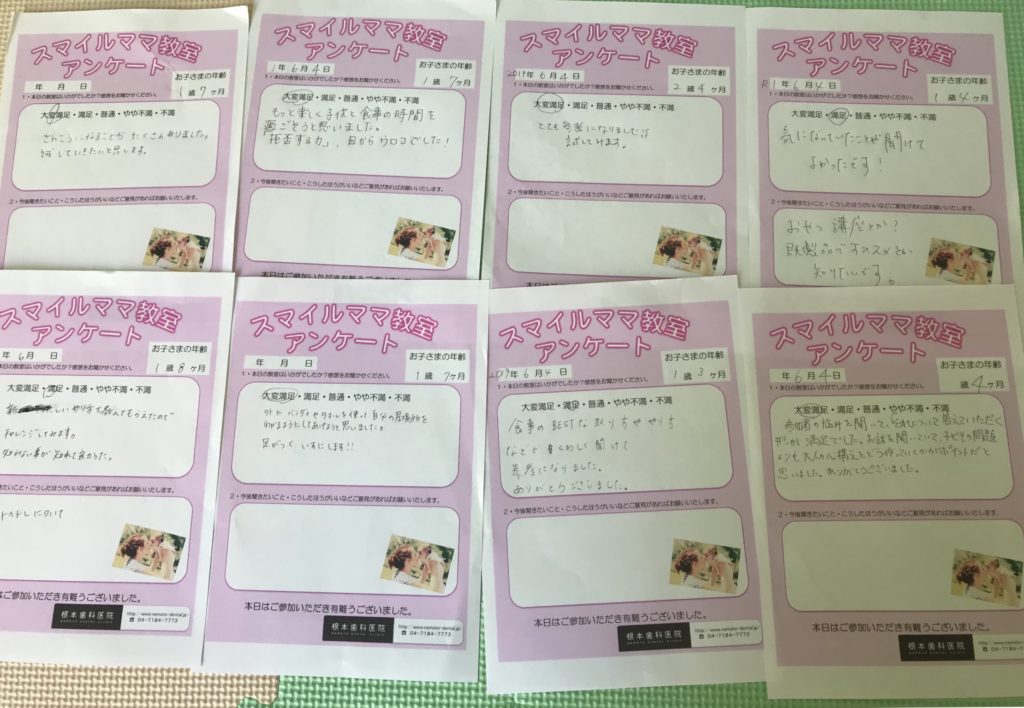 スマイルママ教室
アンケート
お子さまの年齢
年 月 日
1歳 7ヶ月
1・本日の教室はいかがでしたか？感想をお聞かせください。
大変満足・満足・普通・やや不満・不満
たくさんありました。
試していきたいと思います。
2・今後聞きたいこと・こうしたほうがいいなどご意見があればお願いいたします。
スマイルママ教室
アンケート
お子さまの年齢
1年 6月 4日
1歳 7ヶ月
1・本日の教室はいかがでしたか？感想をお聞かせください。
大変満足・満足・普通・やや不満・不満
もっと楽しく子供と食事の時間を
過ごそうと思いました。
「拒否する力」、目からウロコでした！
2・今後聞きたいこと・こうしたほうがいいなどご意見があればお願いいたします。
本日はご参加いただき有難うございました。
スマイルママ教室
アンケート
お子さまの年齢
2019年 6月 4日
2歳 4ヶ月
1・本日の教室はいかがでしたか？感想をお聞かせください。
大変満足・満足・普通・やや不満・不満
とても参考になりました!!
試してみます。
2・今後聞きたいこと・こうしたほうがいいなどご意見があればお願いいたします。
本日はご
スマイルママ教室
アンケート
お子さまの年齢
R1年 6月 4日
1歳 4ヶ月
1・本日の教室はいかがでしたか？感想をお聞かせください。
大変満足・満足・普通・やや不満・不満
気になっていたことが聞けて
よかったです！
2・今後聞きたいこと・こうしたほうがいいなどご意見があればお願いいたします。
おやつ講座とか？
既製品でオススメとか
知りたいです。
スマイルママ教室
アンケート
お子さまの年齢
年 6月 日
1歳 8ヶ月
1・本日の教室はいかがでしたか？感想をお聞かせください。
大変満足・満足・普通・やや不満・不満
新しいやり方も教えてもらえたので
チャレンジしてみます。
知らない事が知れて良かった。
2・今後聞きたいこと・こうしたほうがいいなどご意見があればお願いいたします。
トイトレについて
はご参加いただき有難うございました。
根本歯科医院
NEMOTO DENTAL CLINIC
http://www.nemoto-dental.jp
☎ 04-7184-7773
スマイルママ教室
アンケート
お子さまの年齢
年 月 日
1歳 7ヶ月
1・本日の教室はいかがでしたか？感想をお聞かせください。
大変満足・満足・普通・やや不満・不満
タオルを使って自分の居場所を
わかるようにしてあげようと思いました。
足がつくいすにします!!
2・今後聞きたいこと・こうしたほうがいいなどご意見があればお願いいたします。
本日はご参加いただき有難うございました。
根本歯科医院
NEMOTO DENTAL CLINIC
http://www.nemoto-dental.jp
☎ 04-7184-7773
スマイルママ教室
アンケート
お子さまの年齢
2019年 6月 4日
1歳 3ヶ月
1・本日の教室はいかがでしたか？感想をお聞かせください。
大変満足・満足・普通・やや不満・不満
食事のBESTな取り方ややり方
などが詳しく聞けて
参考になりました。
ありがとうございました。
2・今後聞きたいこと・こうしたほうがいいなどご意見があればお願いいたします。
本日はご参加いただき有難うございました。
根本歯科医院
NEMOTO DENTAL CLINIC
http://www.nemoto-dental.jp
☎ 04-7184-7773
スマイルママ教室
アンケート
お子さまの年齢
年 6月 4日
歳 4ヶ月
1・本日の教室はいかがでしたか？感想をお聞かせください。
大変満足・満足・普通・やや不満・不満
参加者の悩みを聞いて、それについて答えていただく
形が満足でした。お話を聞いていて、子どもの問題
よりも大人の心構えをどう作っていくかがポイントだと
思いました。ありがとうございました。
2・今後聞きたいこと・こうしたほうがいいなどご意見があればお願いいたします。
本日はご参加いただき有難うございました。
根本歯科医院
NEMOTO DENTAL CLINIC